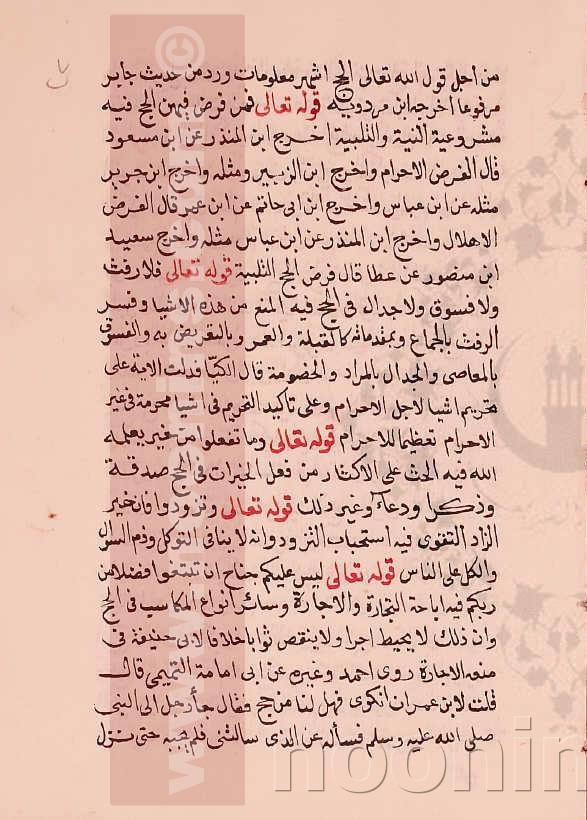 من اجل قول الله تعالى الحج اشهر معلومات ورد من حديث جابر
مرفوعا اخرجه ابن مردويه قوله تعالى فمن فرض فيهن الحج فيه
مشروعية النية والتلبية اخرج ابن المنذر عن ابن مسعود
قال الفرض الاحرام واخرج ابن الزبير ومثله واخرج ابن جرير
مثله عن ابن عباس واخرج ابن ابى حاتم عن ابن عمر قال الفرض
الاهلال واخرج ابن المنذر عن ابن عباس مثله واخرج سعيد
ابن منصور عن عطا قال فرض الحج التلبية قوله تعالى فلا رفث
ولا فسوق ولا جدال فى الحج فيه المنع من هذه الاشيا وفسر
الرفث بالجماع وبمقدماته كالقبلة والغمر وبالتعريض به والفسوق
بالمعاصى والجدال بالمراد والخصومة قال الكيا فدلت الاية على
تحريم اشيا لاجل الاحرام وعلى تاكيد التحريم فى اشيا محرمة فى غير
الاحرام تعظيما للاحرام قوله تعالى وما تفعلوا من خير يعلمه
الله فيه الحث على الاكثار من فعل الخيرات فى الحج صدقة
وذكرا ودعاء وغير ذلك قوله تعالى وتزودوا فان خير
الزاد التقوى فيه استحباب التزود وانه لا ينافى التوكل وذم السوال
والكل على الناس قوله تعالى ليس عليكم جناح ان تبتغوا فضلا من
ربكم فيه اباحة التجارة والاجارة وسائر انواع المكاسب فى الحج
وان ذلك لا يحبط اجرا ولا ينقص ثوابا خلافا لابى حنيفة فى
منعه الاجارة روى احمد وغيره عن ابى امامة التميمى قال
قلت لابن عمر ان انكرى فهل لنا من حج فقال جأ رجل الى النبى
صلى الله عليه وسلم فسأله عن الذى سالتنى فلم يجبه حتى نزل
noonin